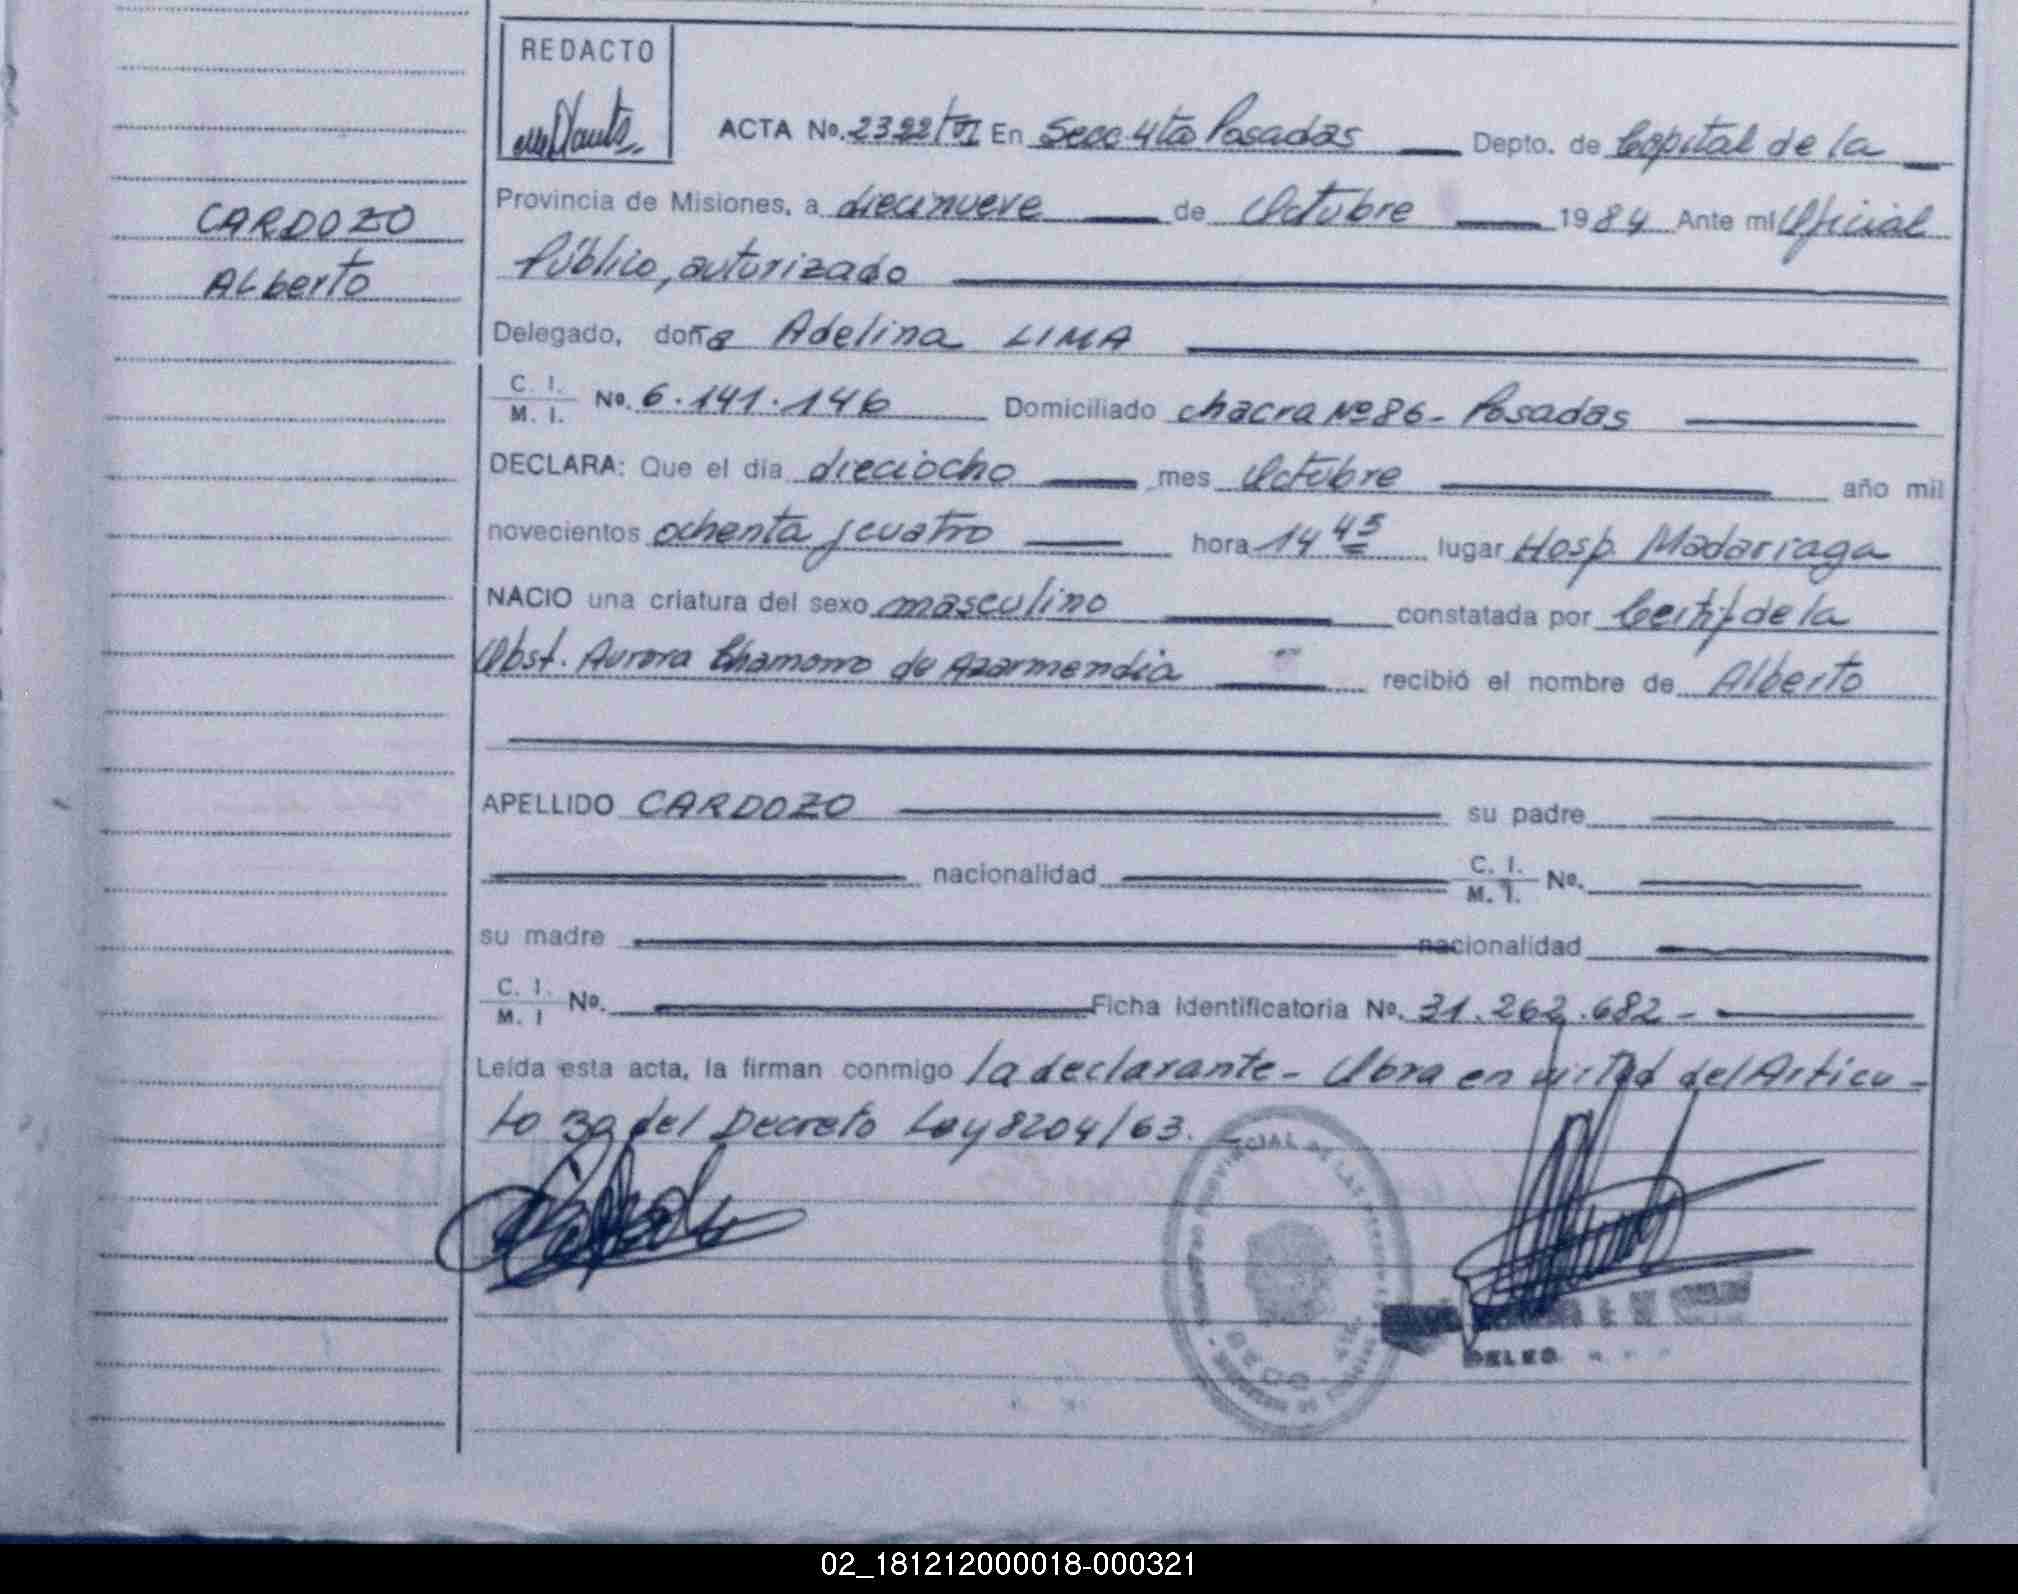 REDACTO
ACTA No. 2322/VI En Secc 4ta Posadas Depto. de Capital de la
CARDOZO
Alberto
Provincia de Misiones, a diecinueve de Octubre 1984 Ante mi Oficial
Público, autorizado
Delegado, doña Adelina LIMA
C. I.
M. I. No. 6.141.146 Domiciliado chacra Nº 86 - Posadas
DECLARA: Que el día dieciocho mes Octubre año mil
novecientos ochenta y cuatro hora 14 45 lugar Hosp. Madariaga
NACIO una criatura del sexo masculino constatada por Certif de la
Obst. Aurora Chamorro de Azarmendia recibió el nombre de Alberto
APELLIDO CARDOZO su padre
nacionalidad C. I.
M. I. No.
su madre nacionalidad
C. I.
M. I No. Ficha Identificatoria No. 31.262.682 -
Leída esta acta, la firman conmigo la declarante - Obra en virtud del Articu -
lo 39 del Decreto Ley 8204/63.
02_181212000018-000321